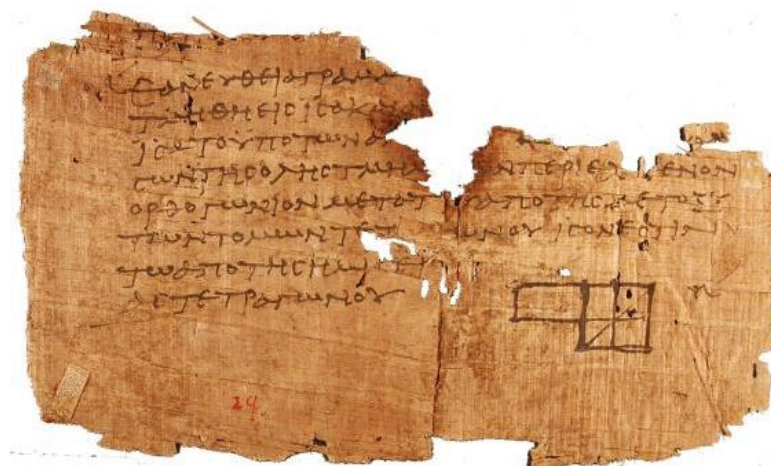 ΕΑΝ ΕΥΘΕΙΑ ΓΡΑΜΜ
ΤΜΗΘΗ ΕΙϹ ΙϹΑ ΚΑΙ
ΙϹΑ ΤΟ ΥΠΟ ΤΩΝ Α
ϹΩΝ ΤΗϹ ΟΛΗϹ ΤΜΗΜΑ ΩΝ ΠΕΡΙΕΧ ΜΕΝΟΝ
ΟΡΘΟΓΩΝΙΟΝ ΜΕΤΑ ΤΟΥ ΑΠΟ ΤΗϹ ΜΕΤΟΞΥ
ΤΩΝ ΤΟΜΩΝ ΤΕΤ ΩΝΟΥ ΙϹΟΝ ΕϹΤΙΝ
ΤΩ ΑΠΟ ΤΗϹ ΗΜΙ
ΤΕΤΡΑΓΩΝΟΥ
29.